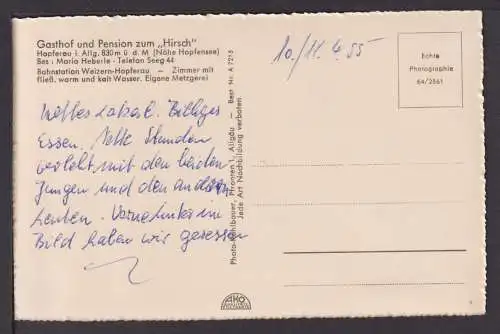 Gasthof und Pension zum „Hirsch"
Hopferau i. Allg. 830 m ü. d. M (Nähe Hopfensee)
Bes: Maria Heberle - Telefon Seeg 44
Bahnstation Weizern-Hopferau — Zimmer mit
fließ. warm und kalt Wasser. Eigene Metzgerei
10/11.4.55
Echte
Photographie
64/2861
Nettes Lokal. Billiges
Essen. Nette Stunden
verlebt mit den beiden
Jungen und den andern
Leuten. Vorne hinter im
Bild haben wir gesessen
Photo Kohlbauer, Pfronten 1, Allgäu — Best Nr: A 7215
Jede Art Nachbildung verboten
AKO